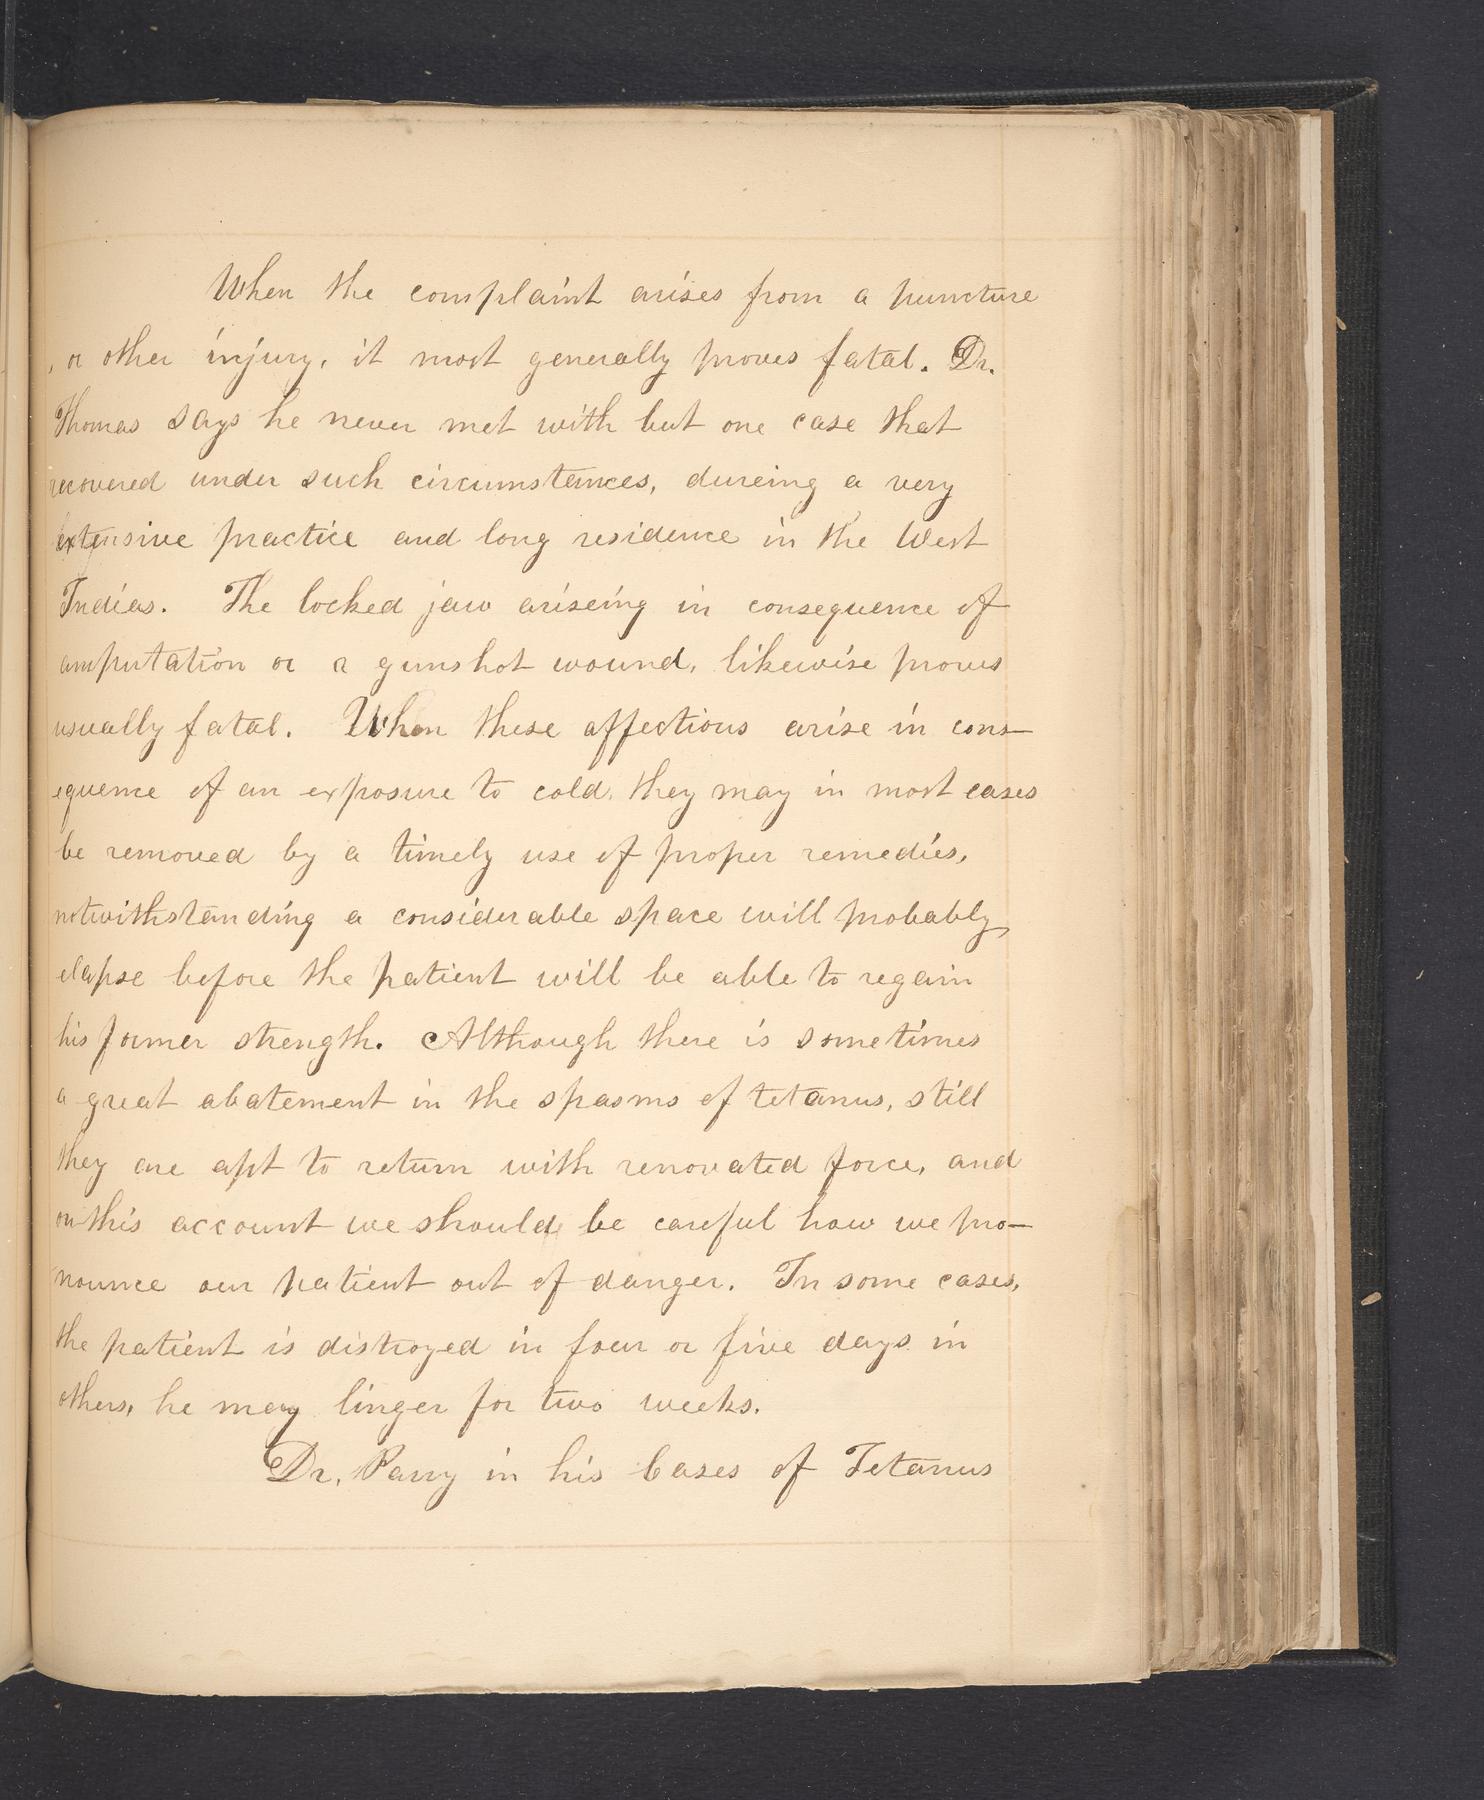 When the complaint arises from a puncture
, or other injury, it most generally proves fatal. Dr.
Thomas says he never met with but one case that
recovered under such circumstances, dureing a very
extensive practice and long residence in the West
Indies. The locked jaw ariseing in consequence of
amputation or a gunshot wound, likewise proves
usually fatal. When these affections arise in cons-
equence of an exposure to cold, they may in most cases
be removed by a timely use of proper remedies,
notwithstanding a considerable space will probably,
elapse before the patient will be able to regain
his former strength. Although there is sometimes
a great abatement in the spasms of tetanus, still
they are apt to return with renovated force, and
on this account we should be careful how we pro-
nounce our patient out of danger. In some cases,
the patient is distroyed in four or five days in
others, he may linger for two weeks.
Dr. Parry in his Cases of Tetanus